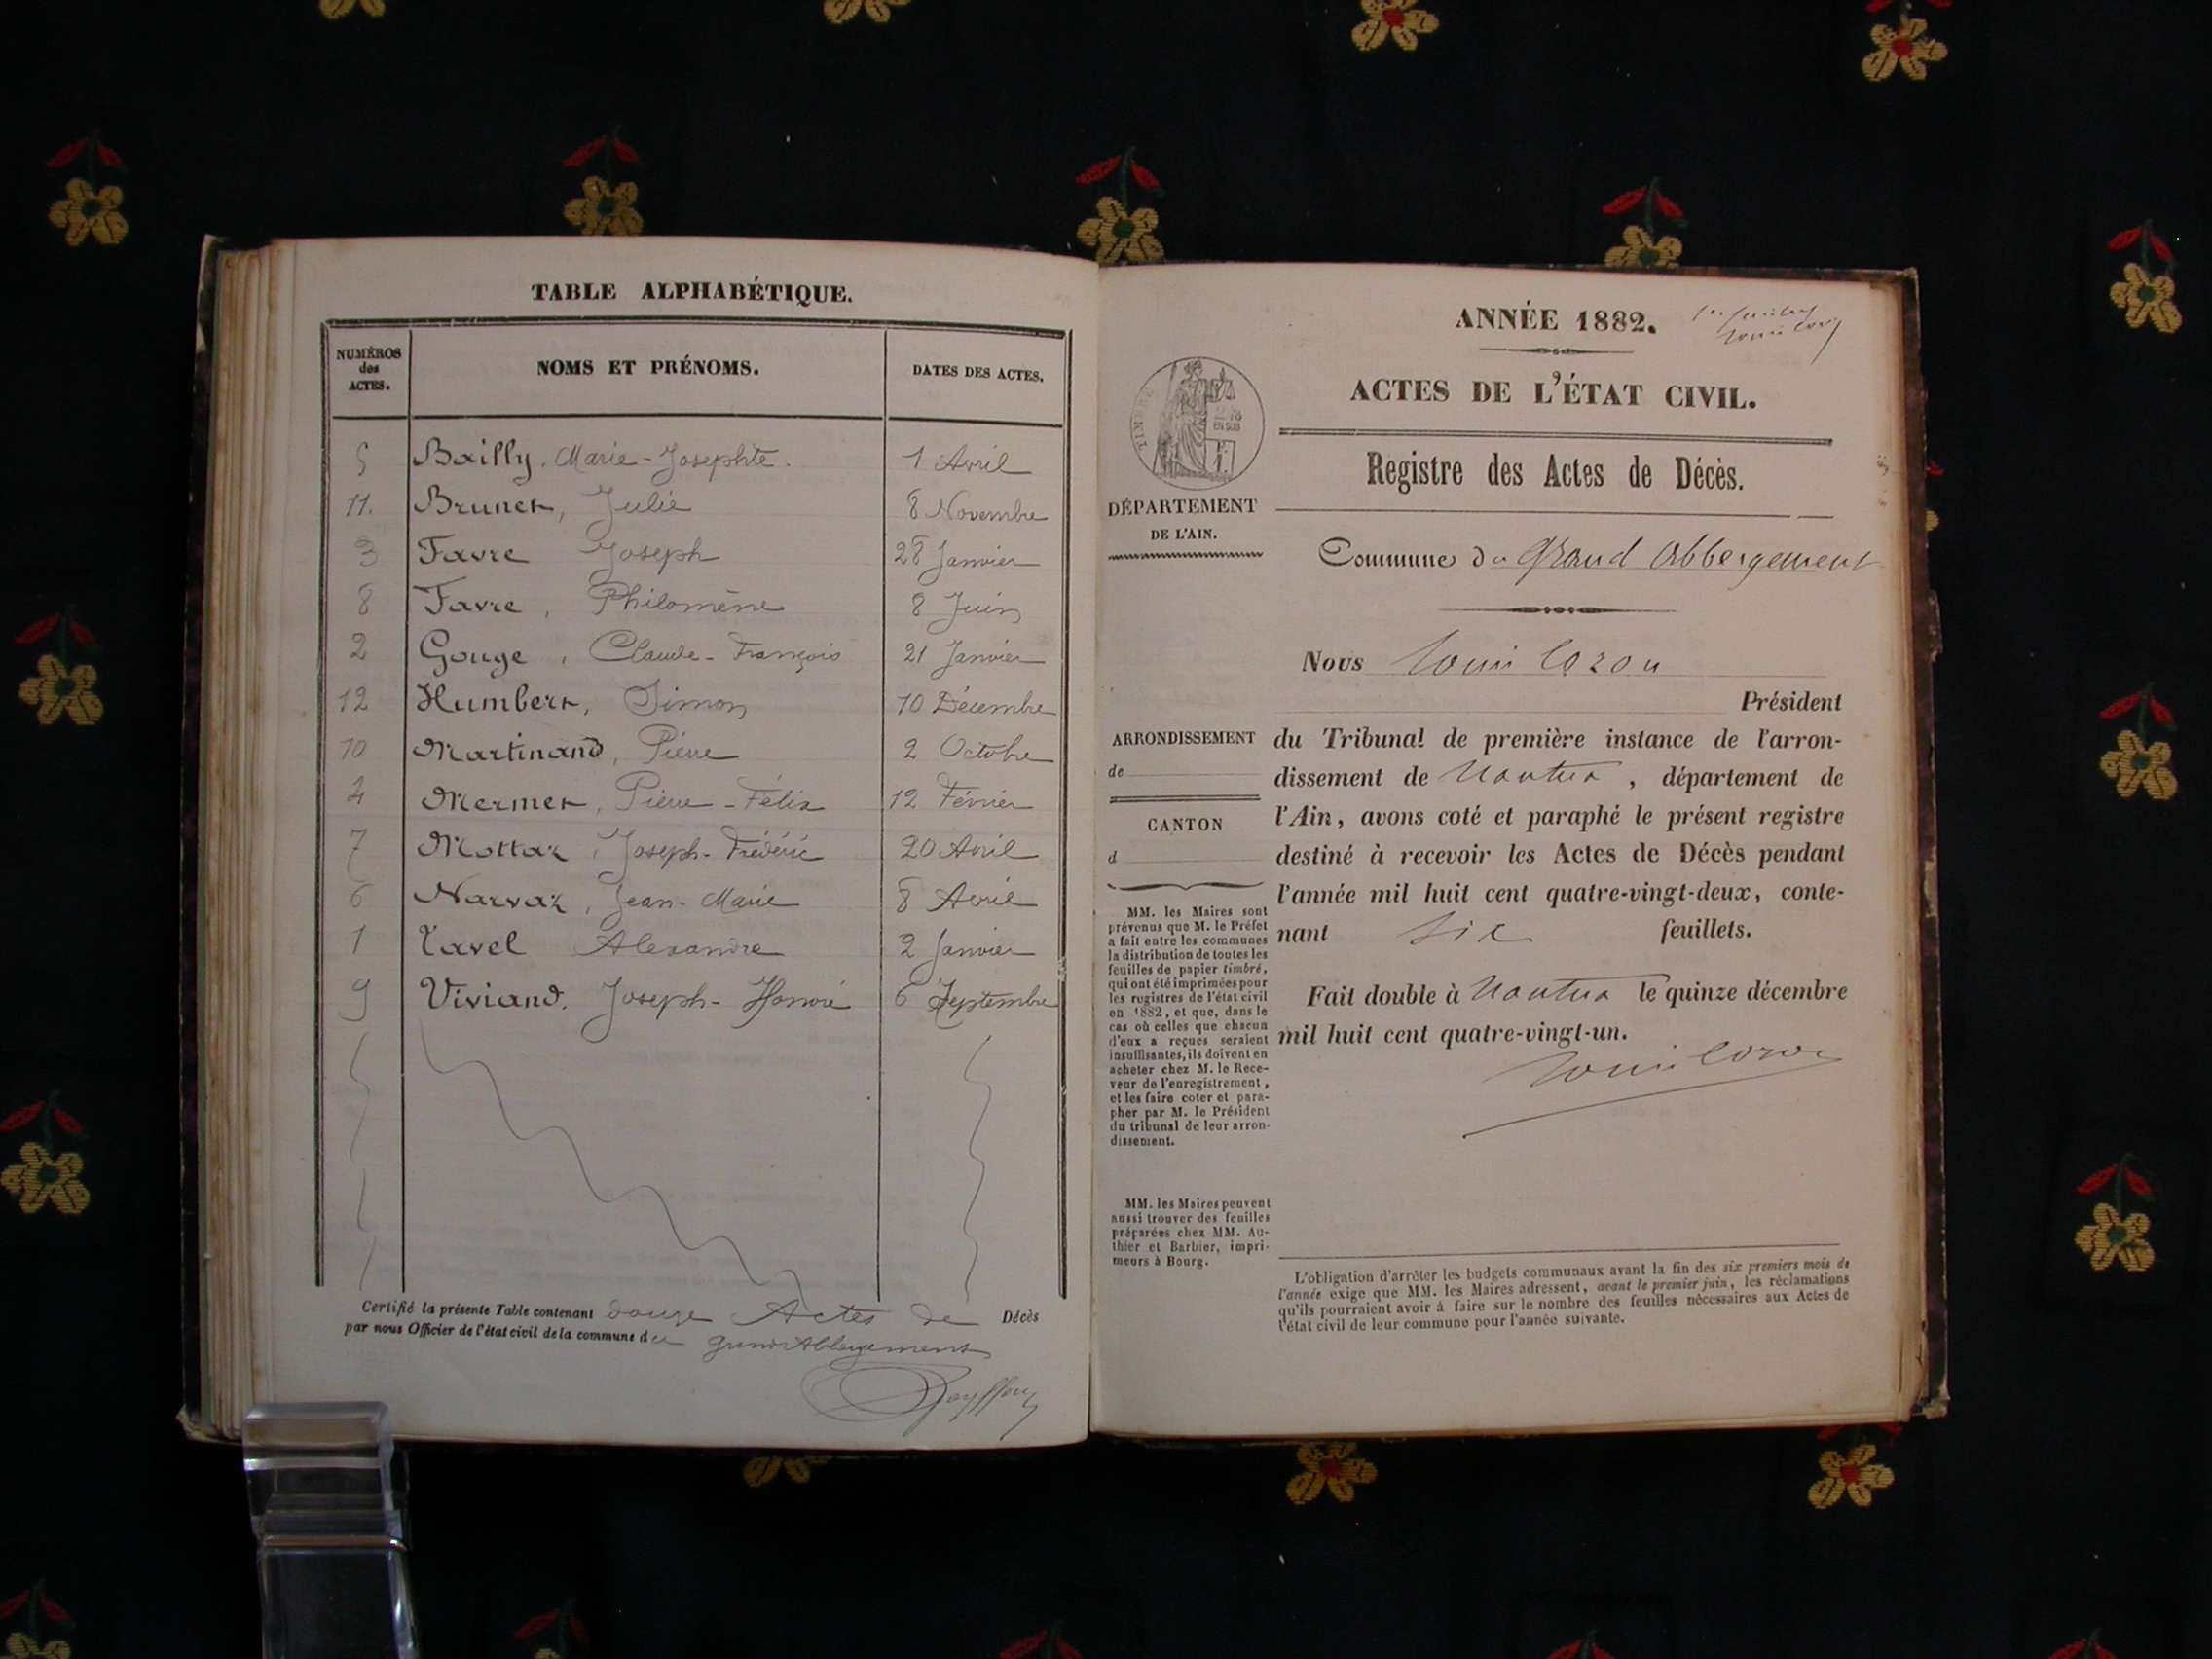 TABLE ALPHABÉTIQUE.
NUMÉROS
des
ACTES.
NOMS ET PRÉNOMS.
DATES DES ACTES.
5 Bailly. Marie-Josephte. 1 Avril
11. Brunet, Julie 8 Novembre
3 Favre Joseph 28 Janvier
8 Favre, Philomène 8 Juin
2 Gouge, Claude-François 21 Janvier
12 Humbert, Simon 10 Décembre
10 Martinand, Pierre 2 Octobre
4 Mermet, Pierre-Félix 12 Février
7 Mottaz, Joseph-Frédéric 20 Avril
6 Narvaz, Jean-Marie 8 Avril
1 Tavel Alexandre 2 Janvier
9 Viviand. Joseph-Honoré 6 Septembre
Certifié la présente Table contenant douze Actes de Décès
par nous Officier de l'état civil de la commune du grand Abbergement
ANNÉE 1882.
ACTES DE L'ÉTAT CIVIL.
Registre des Actes de Décès.
DÉPARTEMENT
DE L'AIN.
Commune du Grand Abbergement
Nous Louis Cozon
Président
du Tribunal de première instance de l'arron-
dissement de Nantua, département de
l'Ain, avons coté et paraphé le présent registre
destiné à recevoir les Actes de Décès pendant
l'année mil huit cent quatre-vingt-deux, conte-
nant six feuillets.
Fait double à Nantua le quinze décembre
mil huit cent quatre-vingt-un.
Louis Cozon
ARRONDISSEMENT
de
CANTON
d
MM. les Maires sont
prévenus que M. le Préfet
a fait entre les communes
la distribution de toutes les
feuilles de papier timbré,
qui ont été imprimées pour
les registres de l'état civil
en 1882, et que, dans le
cas où celles que chacun
d'eux a reçues seraient
insuffisantes, ils doivent en
acheter chez M. le Rece-
veur de l'enregistrement,
et les faire coter et para-
pher par M. le Président
du tribunal de leur arron-
dissement.
MM. les Maires peuvent
aussi trouver des feuilles
préparées chez MM. Au-
thier et Barbier, impri-
meurs à Bourg.
L'obligation d'arrêter les budgets communaux avant la fin des six premiers mois de
l'année exige que MM. les Maires adressent, avant le premier juin, les réclamations
qu'ils pourraient avoir à faire sur le nombre des feuilles nécessaires aux Actes de
l'état civil de leur commune pour l'année suivante.